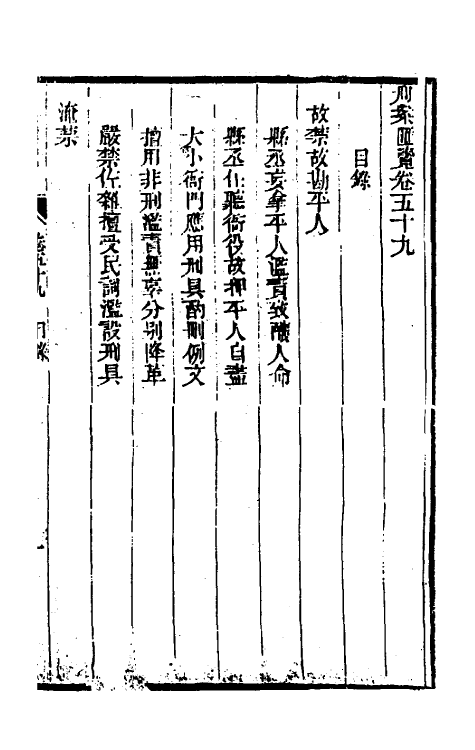 刑案匯覽卷五十九
目錄
故禁故勘平人
縣丞妄拿平人濫責致釀人命
縣丞任聽衙役故押平人自盡
大小衙門應用刑具酌刪例文
擅用非刑濫責無辜分別降革
嚴禁佐雜擅受民詞濫設刑具
淹禁
目錄